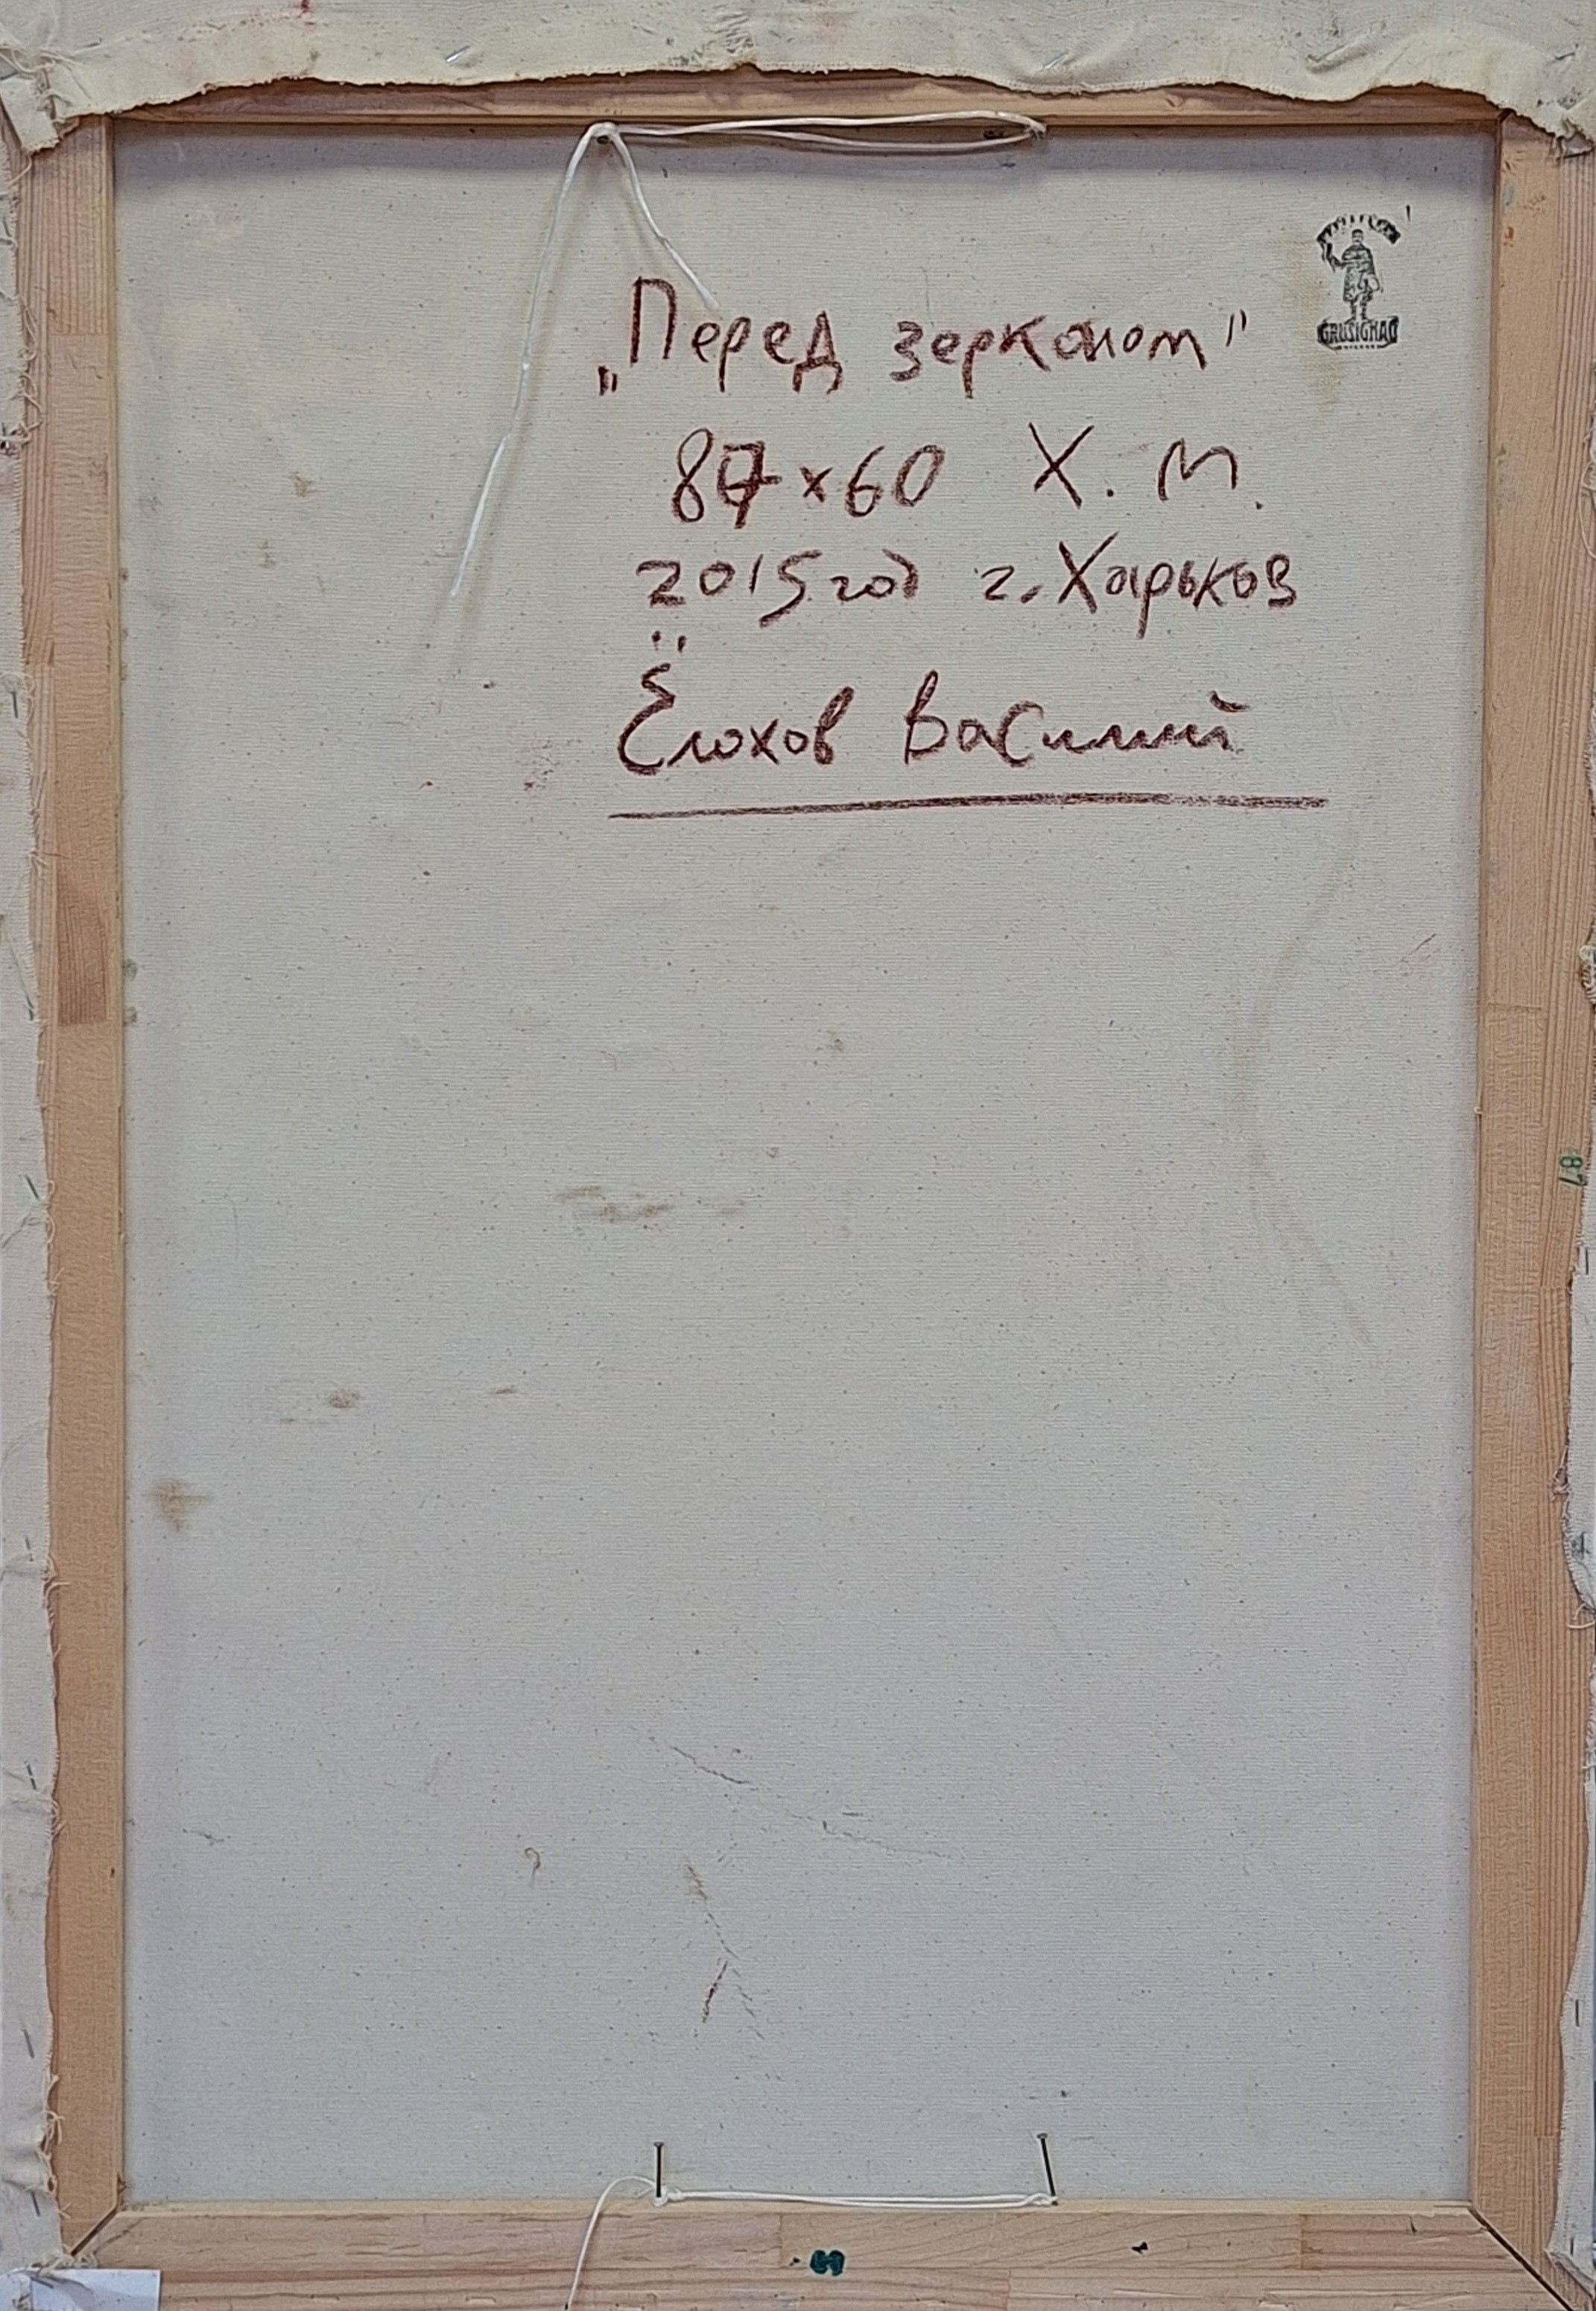 „Перед зеркалом"
87×60 Х. М.
2015 год г. Харьков
Ёлохов Василий
GRUSIGNAC
87